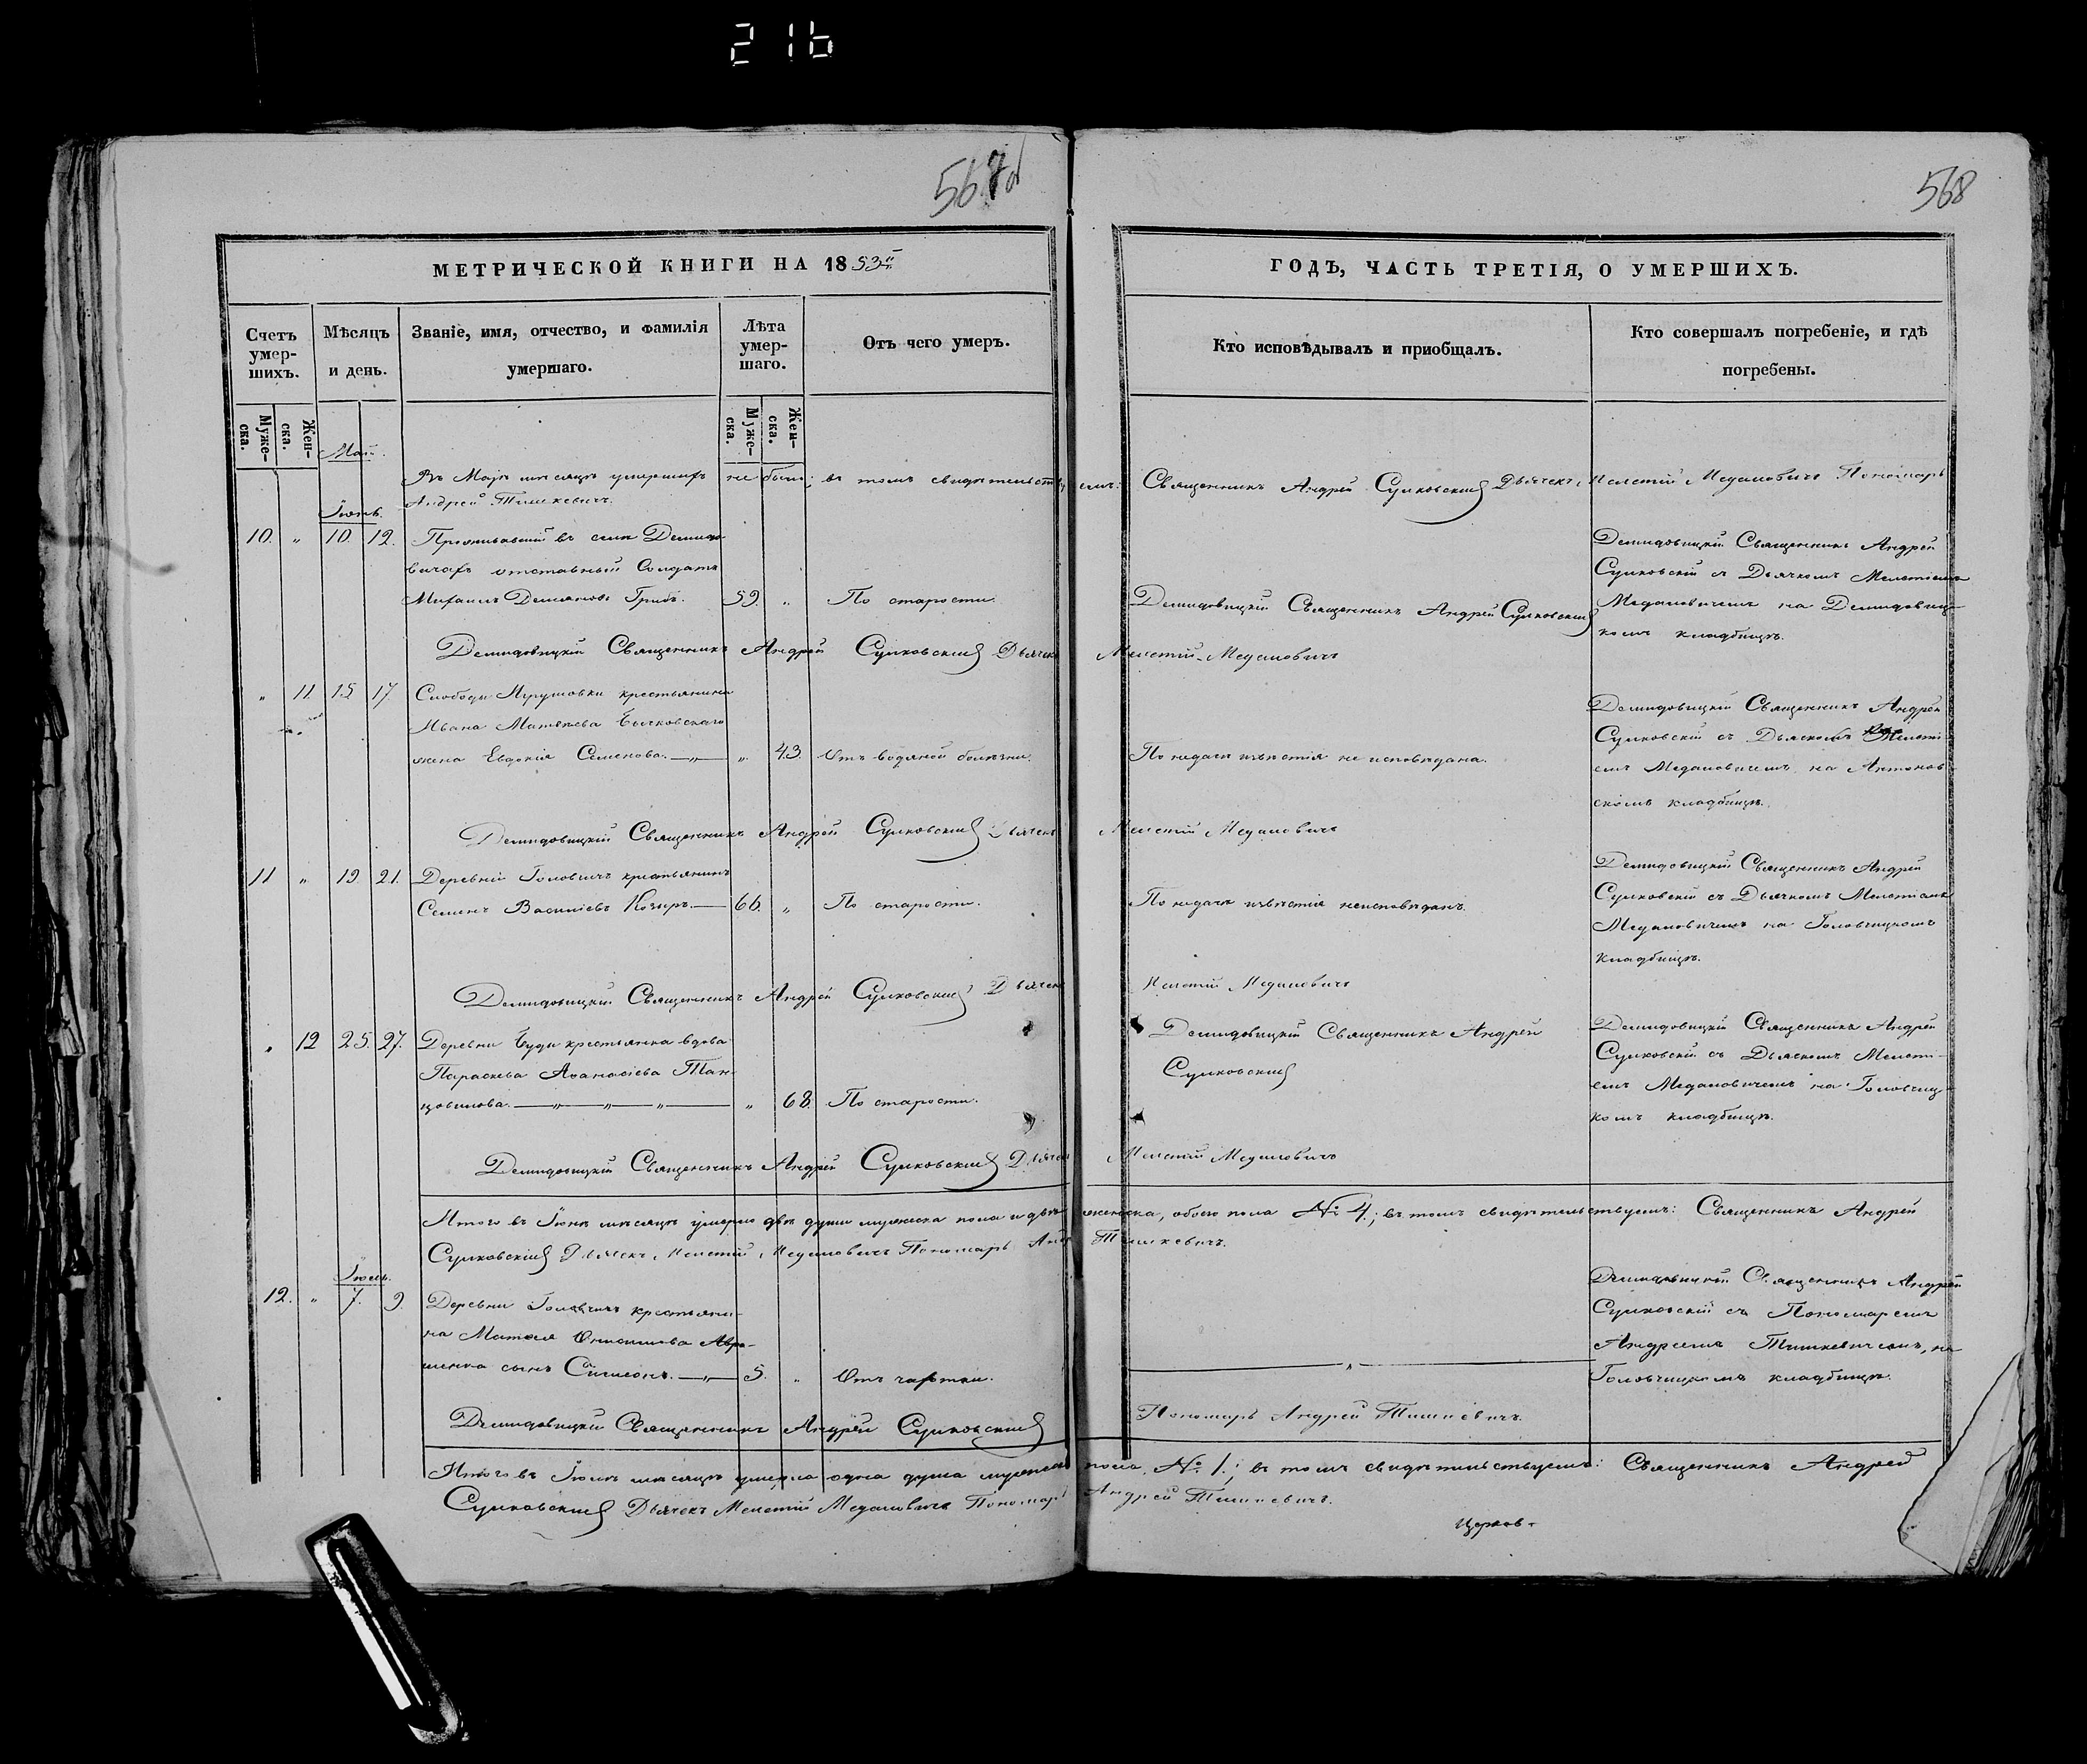 216
567об
568
МЕТРИЧЕСКОЙ КНИГИ НА 1853й
ГОДЪ, ЧАСТЬ ТРЕТІЯ, О УМЕРШИХЪ.
Счетъ умер-
шихъ.
Мѣсяцъ
и день.
Званіе, имя, отчество, и фамилія
умершаго.
Лѣта
умер-
шаго.
Отъ чего умеръ.
Кто исповѣдывалъ и приобщалъ.
Кто совершалъ погребеніе, и гдѣ
погребены.
Муже-
ска.
Жен-
ска.
Муже-
ска.
Жен-
ска.
Май.
Въ Маѣ мѣсяцѣ умершихъ не было; въ томъ свидѣтельствуемъ: Священникъ Андрей Сулковскій Дьячекъ Мелетій Медаловичъ Пономарь
Андрей Тишкевичъ.
Іюнь.
10. „ 10. 12. Проживавшій въ селѣ Демидо-
вичахъ отставный Солдатъ
Михаилъ Демьяновъ Грибъ. 59. „ По старости.
Демидовицкій Священникъ Андрей Сулковскій
Демидовицкій Священникъ Андрей
Сулковскій съ Дьячкомъ Мелетіемъ
Медаловичемъ на Демидовиц-
комъ кладбищѣ.
Демидовицкій Священникъ Андрей Сулковскій Дьячекъ Мелетій Медаловичъ
„ 11. 15 17. Слободы крестьянина
Ивана Матвѣева Бычковскаго
жена Евдокія Семенова. „ 43. Отъ водяной болѣзни.
По недачѣ извѣстія не исповѣдана.
Демидовицкій Священникъ Андрей
Сулковскій съ Дьячкомъ Мелеті-
емъ Медаловичемъ на Антонов-
скомъ кладбищѣ.
Демидовицкій Священникъ Андрей Сулковскій Дьячекъ Мелетій Медаловичъ
11 „ 19. 21. Деревни Головчичъ крестьянинъ
Семенъ Василіевъ Козыръ. 66. „ По старости.
По недачѣ извѣстія неисповѣданъ.
Демидовицкій Священникъ Андрей
Сулковскій съ Дьячкомъ Мелетіемъ
Медаловичемъ на Головчицкомъ
кладбищѣ.
Демидовицкій Священникъ Андрей Сулковскій Дьячекъ Мелетій Медаловичъ
„ 12 25. 27. Деревни Буды крестьянка вдова
Параскева Аѳанасіева Тан-
цовилова. „ 68. По старости.
Демидовицкій Священникъ Андрей
Сулковскій
Демидовицкій Священникъ Андрей
Сулковскій съ Дьячкомъ Мелеті-
емъ Медаловичемъ на Головчиц-
комъ кладбищѣ.
Демидовицкій Священникъ Андрей Сулковскій Дьячекъ Мелетій Медаловичъ
Итого въ Іюнѣ мѣсяцѣ умерло двѣ души мужеска пола и двѣ женска, обоего пола № 4.; въ томъ свидѣтельствуемъ: Священникъ Андрей
Сулковскій Дьячекъ Мелетій Медаловичъ Пономарь Андр Тишкевичъ.
Іюль.
12. „ 7. 9. Деревни Головчичъ крестьяни-
на Матѳея Онисимова Авра-
менка сынъ Симеонъ. 5. „ Отъ чахотки.
Демидовицкій Священникъ Андрей
Сулковскій съ Пономаремъ
Андреемъ Тишкевичемъ, на
Головчицкомъ кладбищѣ.
Демидовицкій Священникъ Андрей Сулковскій Пономарь Андрей Тишкевичъ.
Итого въ Іюлѣ мѣсяцѣ умерла одна душа мужеска пола, № 1.; въ томъ свидѣтельствуемъ: Священникъ Андрей
Сулковскій Дьячекъ Мелетій Медаловичъ Пономарь Андрей Тишкевичъ.
Церков-